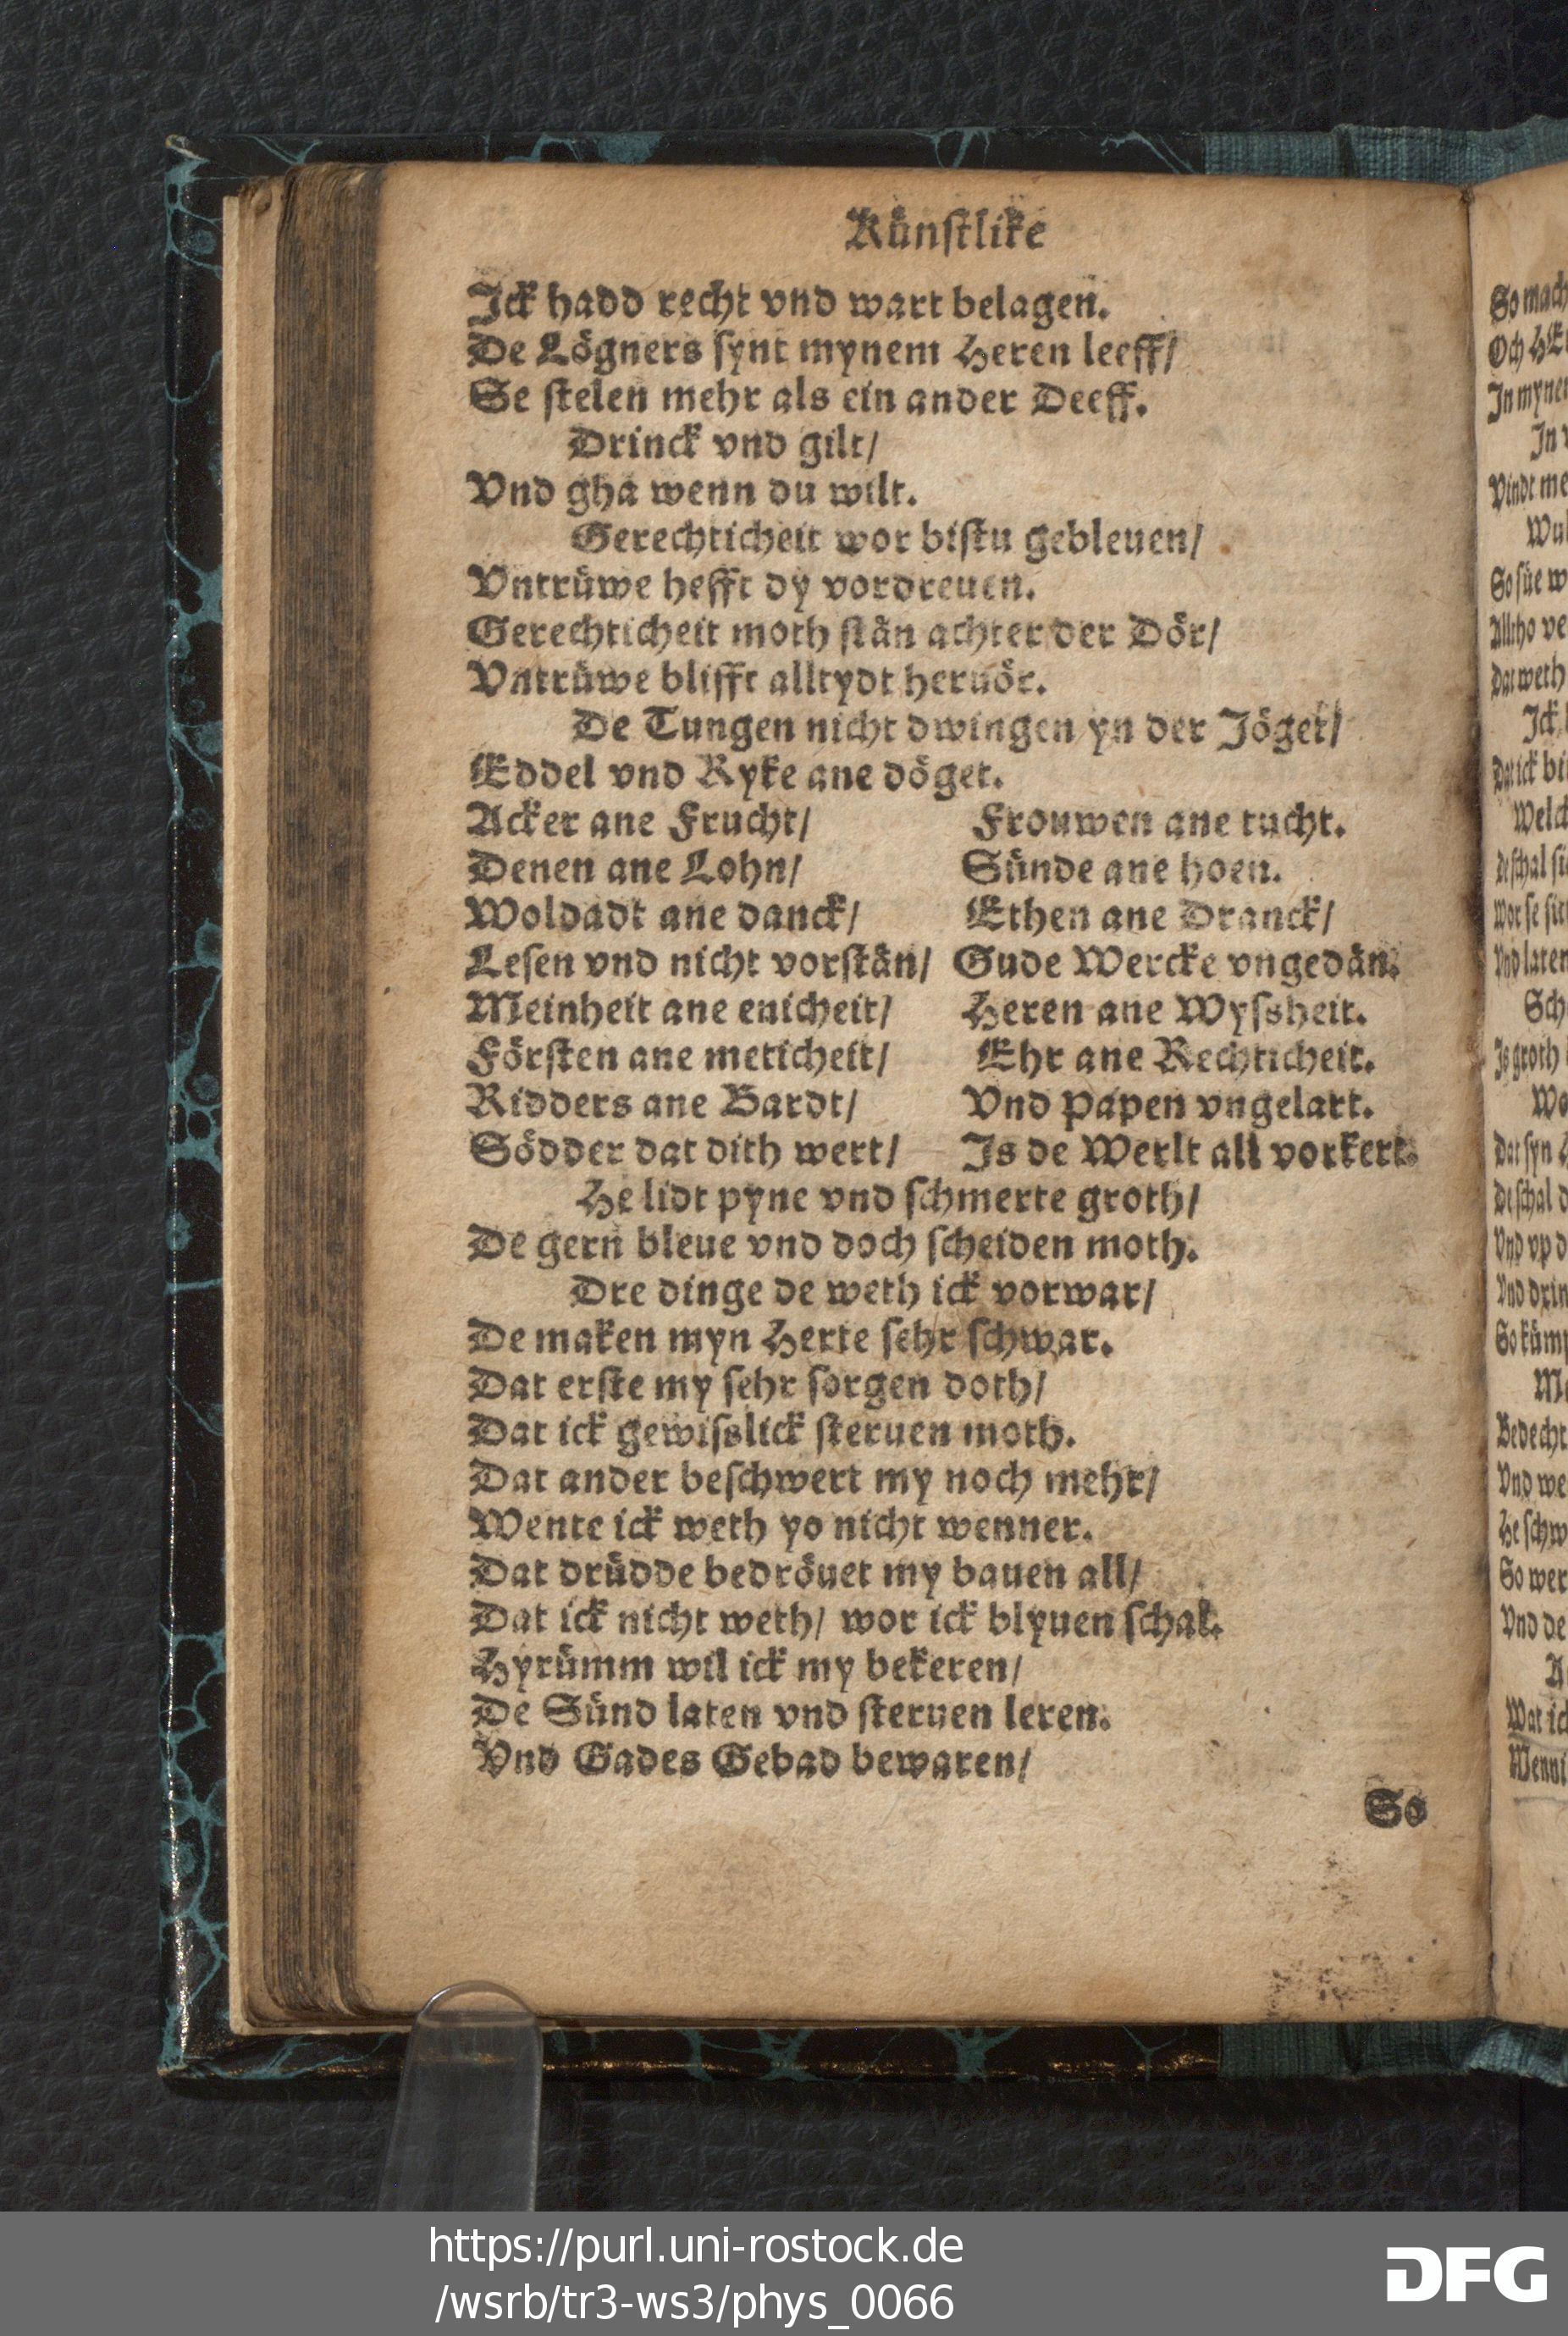 Künſtlike
Ick hadd recht vnd wart belagen.
De Lögners ſynt mynem Heren leeff/
Se ſtelen mehr als ein ander Deeff.
Drinck vnd gilt/
Vnd gha wenn du wilt.
Gerechticheit wor biſtu gebleuen/
Vntrüwe hefft dy vordreuen.
Gerechticheit moth ſtån achter der Dör/
Vntrüwe blifft alltydt heruör.
De Tungen nicht dwingen yn der Jöget/
Eddel vnd Ryke ane döget.
Acker ane Frucht/ Frouwen ane tucht.
Denen ane Lohn/ Sünde ane hoen.
Woldadt ane danck/ Ethen ane Dranck/
Leſen vnd nicht vorſtån/ Gude Wercke vngedån.
Meinheit ane enicheit/ Heren ane Wyſsheit.
Förſten ane meticheit/ Ehr ane Rechticheit.
Ridders ane Bardt/ Vnd Papen vngelart.
Södder dat dith wert/ Is de Werlt all vorkert.
He lidt pyne vnd ſchmerte groth/
De gern bleue vnd doch ſcheiden moth.
Dre dinge de weth ick vorwar/
De maken myn Herte ſehr ſchwar.
Dat erſte my ſehr ſorgen doth/
Dat ick gewiſslick ſteruen moth.
Dat ander beſchwert my noch mehr/
Wente ick weth yo nicht wenner.
Dat drüdde bedröuet my bauen all/
Dat ick nicht weth/ wor ick blyuen ſchal.
Hyrümm wil ick my bekeren/
De Sünd laten vnd ſteruen leren.
Vnd Gades Gebad bewaren/
So
So mach
Och
In myne
In
Vindt me
So ſüe w
Alltho ve
Dat weth
Ick
Dat ick bi
Welck
De ſchal
Wor ſe
Vnd laten
Sch
Is groth
Dat ſyn
De ſchal
Vnd vp
Vnd drin
So küm
Bedecht
Vnd we
He ſchw
So wer
Vnd de
Wat ick
Wenn
https://purl.uni-rostock.de
/wsrb/tr3-ws3/phys_0066
DFG